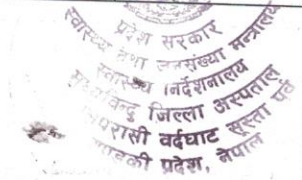 प्रदेश सरकार
स्वास्थ्य तथा जनसंख्या मन्त्रालय
स्वास्थ्य निर्देशनालय
मध्यविन्दु जिल्ला अस्पताल
नवलपरासी वर्दघाट सुस्ता पूर्व
गण्डकी प्रदेश, नेपाल